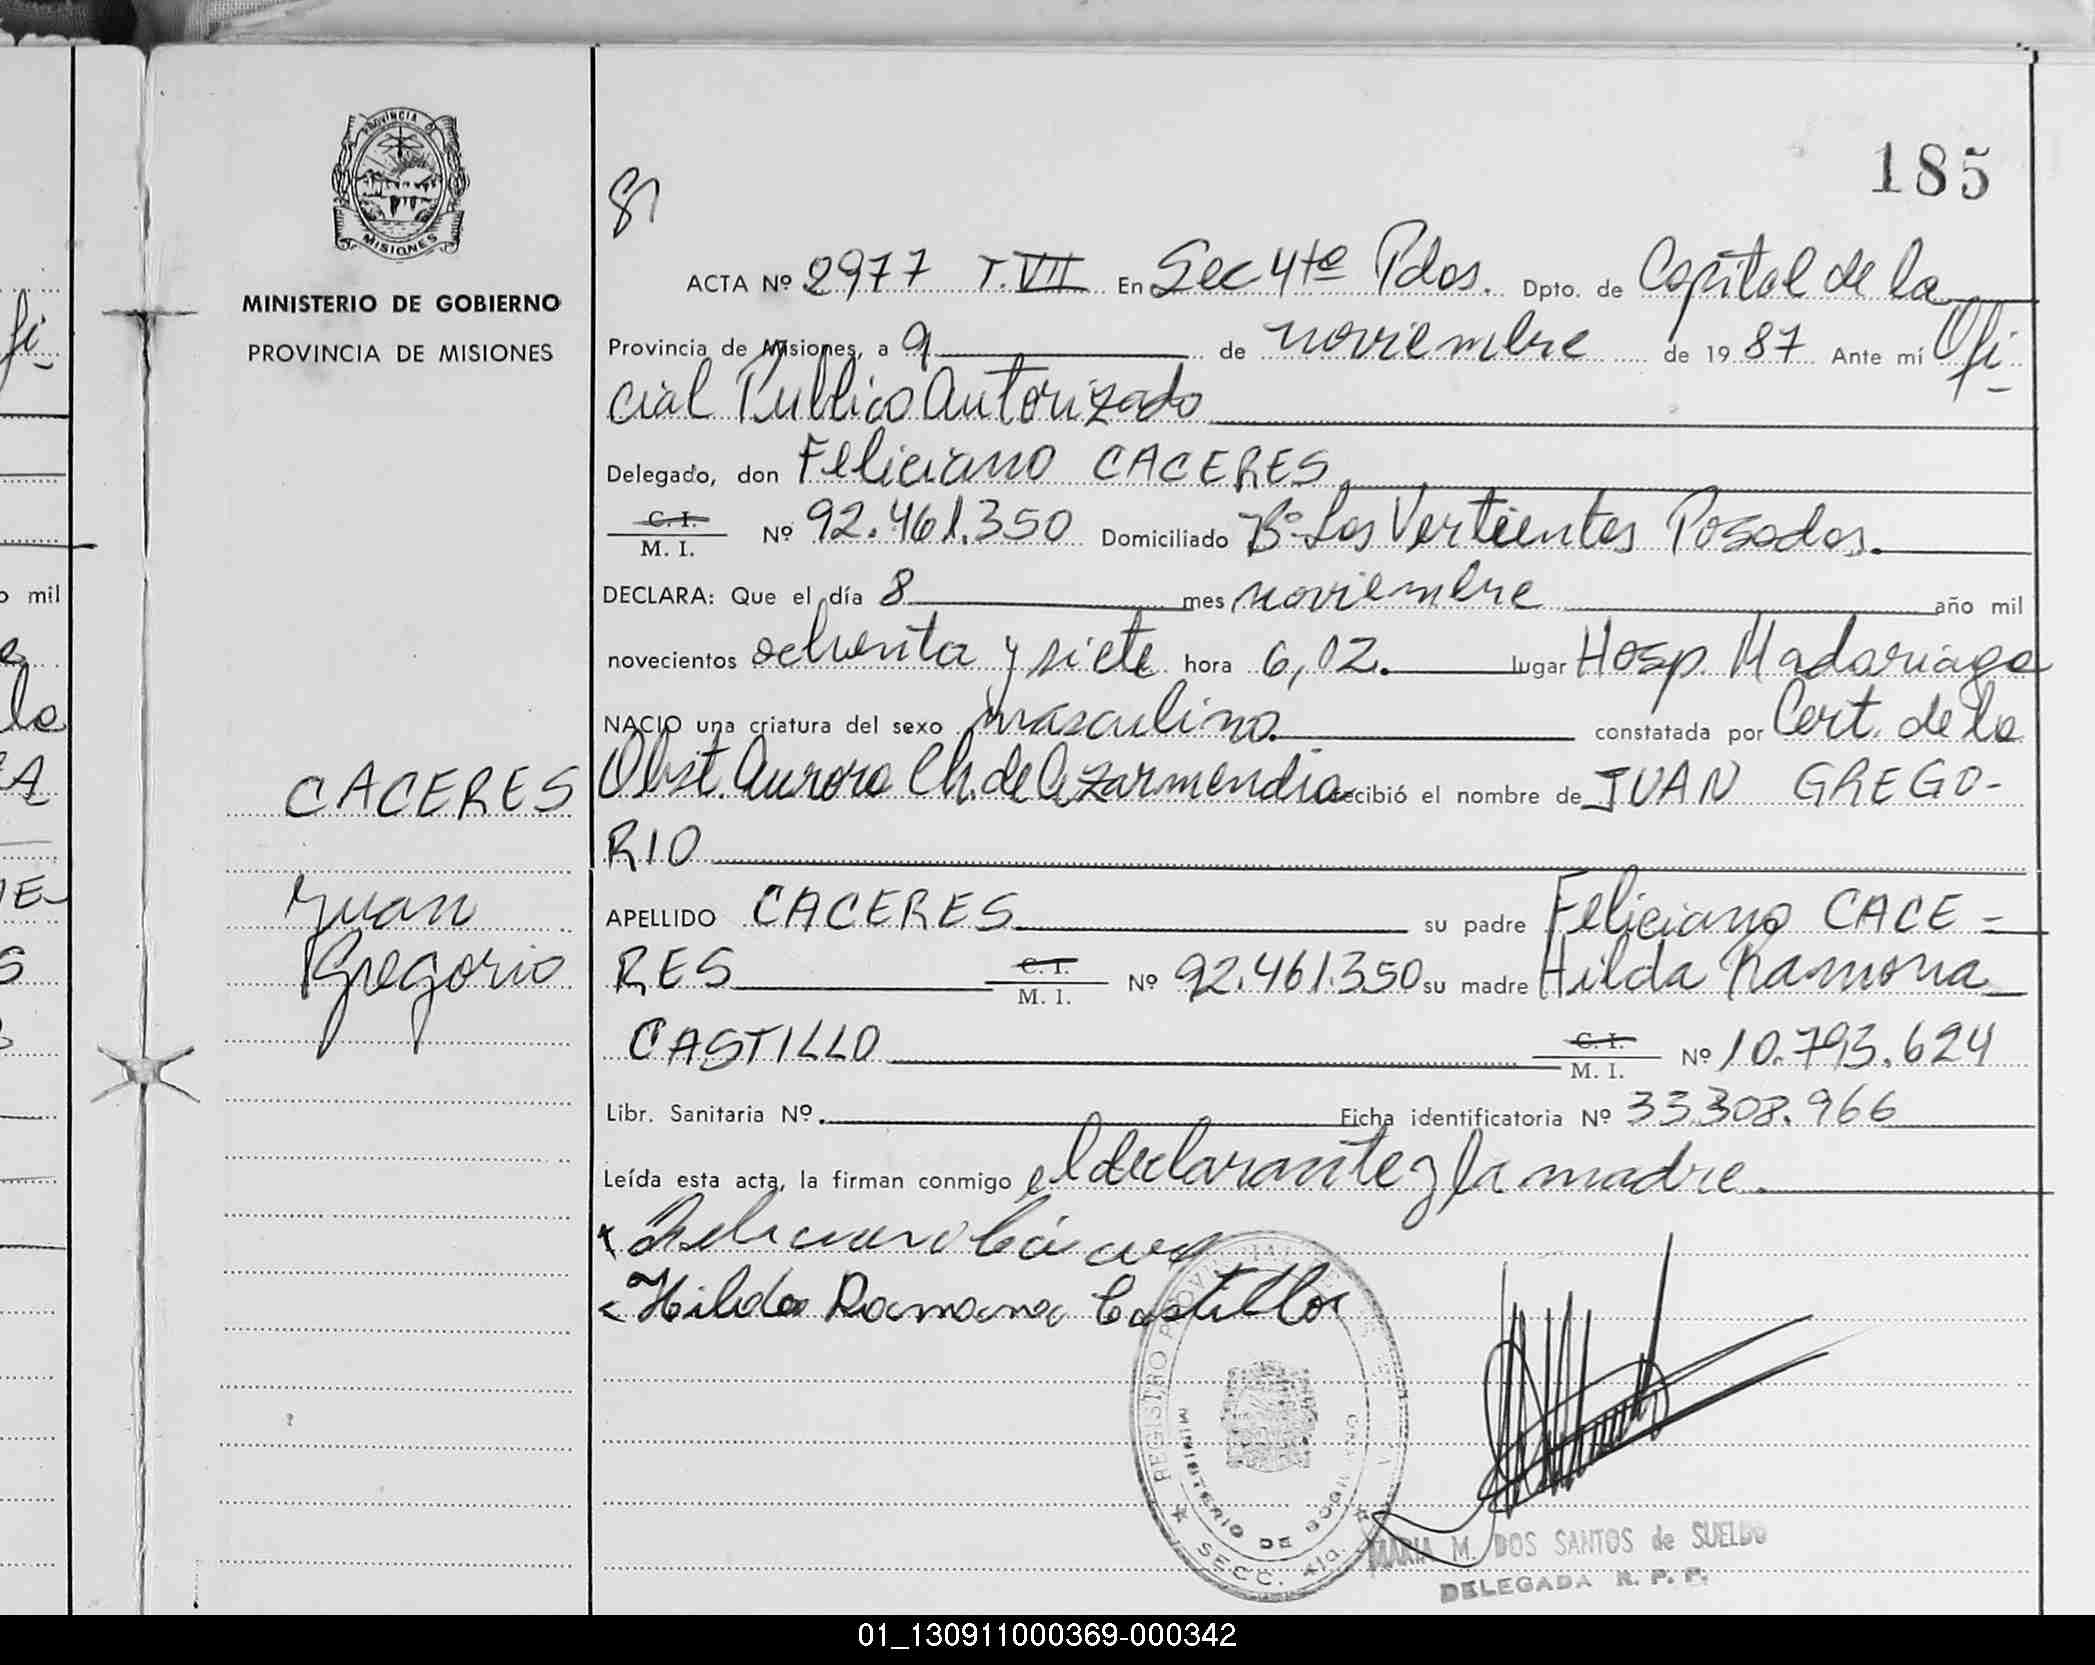 PROVINCIA DE
MISIONES
MINISTERIO DE GOBIERNO
PROVINCIA DE MISIONES
CACERES
Juan
Gregorio
185
ACTA Nº 2977 T. VII En Sec 4ta Pdas. Dpto. de Capital de la
Provincia de Misiones, a 9 de noviembre de 1987 Ante mí Ofi-
cial Publico Autorizado
Delegado, don Feliciano CACERES
C. I.
M. I. Nº 92.461.350 Domiciliado Bº Las Vertientes Posadas.
DECLARA: Que el día 8 mes noviembre año mil
novecientos ochenta y siete hora 6,02. lugar Hosp. Madariaga
NACIO una criatura del sexo masculino. constatada por Cert. de la
Obst. Aurora Ch. de Azarmendia recibió el nombre de JUAN GREGO-
RIO
APELLIDO CACERES su padre Feliciano CACE=
RES C. I. M. I. Nº 92.461.350 su madre Hilda Ramona
CASTILLO C. I. M. I. Nº 10.793.624
Libr. Sanitaria Nº. Ficha identificatoria Nº 33.308.966
Leída esta acta, la firman conmigo el declarante y la madre.
Feliciano Cáceres
Hilda Ramona Castillo
REGISTRO PROVINCIAL DE
MINISTERIO DE GOBIERNO
SECC. 4ta.
MARIA M. DOS SANTOS de SUELDO
DELEGADA R. P. P.
01_130911000369-000342
mil